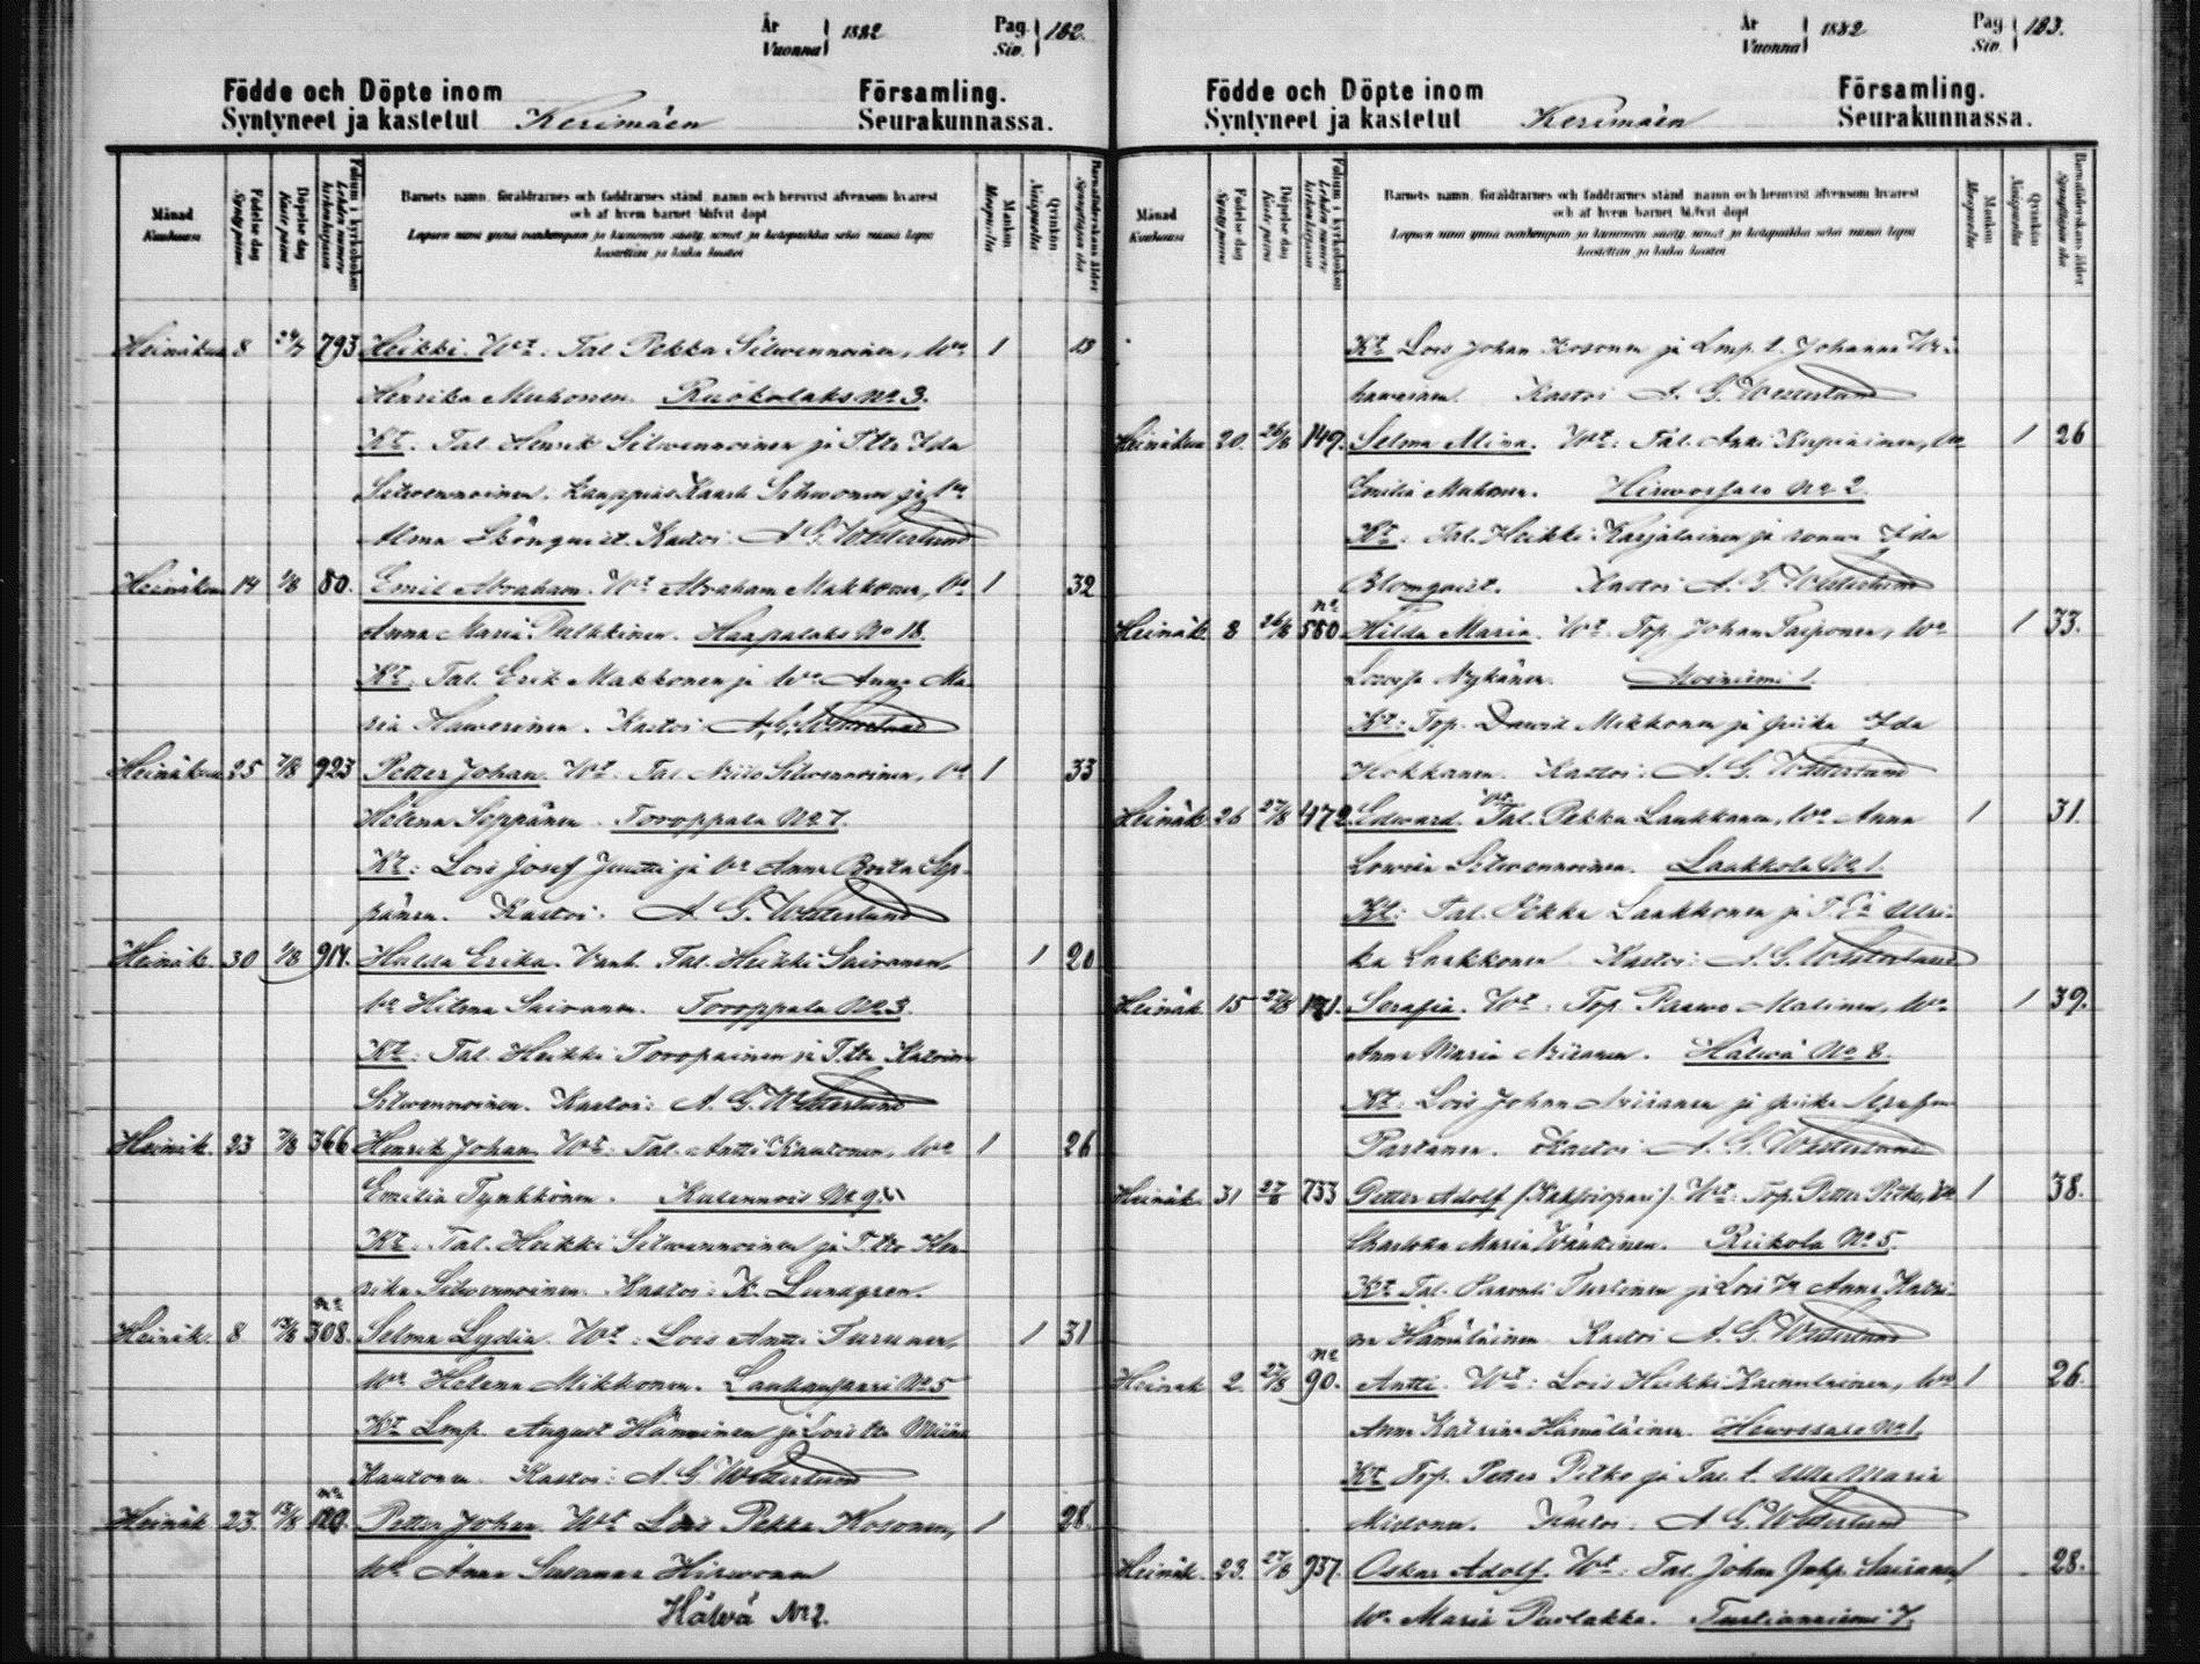 År Vuonna 1882 Pag. Siv. 182.
Födde och Döpte inom Församling.
Syntyneet ja kastetut Kerimäen Seurakunnassa.
Månad Kuukausi
Födelse dag Syntypäivä
Döpelse dag Kastepäivä
Folium i kyrkoboken Lehden numero kirkonkirjassa
Barnets namn, föräldrarnes och faddrarnes stånd, namn och hemvist äfvensom hvarest
och af hvem barnet blifvit döpt
Lapsen nimi ynnä vanhempain ja kummien sääty, nimet ja kotipaikka sekä missä lapsi
kastettiin ja kuka kastoi
Mankön Miespuolia
Qvinkön Naispuolia
Barnaföderskans ålder Synnyttäjän ikä
Heinäkuu 8 29/7 793 Heikki. Wt: Tal. Pekka Silwennoinen, Wo 1
Henrika Muhonen. Ruokolaks No 3.
Kt. Tal. Henrik Silwennoinen ja T.tär Ida
Silwennoinen. Kauppias Silwonen ja
Alma Kastoi A G Westerlund
Heinäkuu 14 1/8 80. Emil Abraham. Wt Abraham Makkonen, Wo 1 32
Anna Maria Pulkkinen. Haapalaks No 18.
Kt: Tal. Erik Makkonen ja Wo Anna Ma-
ria Haworinen. Kastoi A. G. Westerlund
Heinäkuu 25 7/8 923 Petter Johan. Wt. Tal. Niilo Silwennoinen, Wo 1 33
Helena Seppänen. Toroppala No 7.
Kt: Lois Josef Juutti ja Wo Anna Brita Sep-
pänen. Kastoi. A. G. Westerlund
Heinäk. 30 1/8 914. Hulda Erika. Vanh. Tal. Heikki Sairanen, 1 20
Wo Hilma Sairanen. Toroppala No 3.
Kt: Tal. Heikki Toropainen ja T.tär Katrina
Silwennoinen. Kastoi: A. G. Westerlund
Heinäk. 23 7/8 366 Henrik Johan. Wt: Tal. Antti Kautonen, Wo 1 26
Emilia Tynkkönen. Kulennois No 9.
Kt: Tal. Heikki Silwennoinen ja T.tär Hen-
rika Silwennoinen. Kastoi: K. Lundgren.
Heinäk. 8 13/8 308. Selma Lydia. Wt: Lois Antti Turunen, 1 31
Wo Helena Mikkonen. Laukansaari No 5
Kt Lmp. August Hänninen ja Lois tär Miina
Kautonen. Kastoi: A. G. Westerlund
Heinäk 23. 13/8 120. Petter Johan. Wt Lois Pekka Kosonen, 1 28.
Wo Anna Susanna Hirwonen
Hälvä No 2.
År Vuonna 1882 Pag Siv. 183.
Födde och Döpte inom Församling.
Syntyneet ja kastetut Kerimäen Seurakunnassa.
Månad Kuukausi
Födelse dag Syntypäivä
Döpelse dag Kastepäivä
Folium i kyrkoboken Lehden numero kirkonkirjassa
Barnets namn, föräldrarnes och faddrarnes stånd, namn och hemvist äfvensom hvarest
och af hvem barnet blifvit döpt
Lapsen nimi ynnä vanhempain ja kummien sääty, nimet ja kotipaikka sekä missä lapsi
kastettiin ja kuka kastoi
Mankön Miespuolia
Qvinkön Naispuolia
Barnaföderskans ålder Synnyttäjän ikä
Kt Lois Johan Kosonen ja Lmp. t. Johanna
Kastoi A. G. Westerlund
Heinäkuu 20. 26/8 149. Selma Miina. Wt: Tal. Antti Kupiainen, Wo 1 26
Emilia Muhonen. Hirvassalo No 2.
Kt: Tal. Heikki Karjalainen ja Ida
Blomquist. Kastoi A. G. Westerlund
Heinäk. 8 26/8 no 550 Hilda Maria. Wt. Top. Johan Paiponen, Wo 1 33.
Lovisa Nykänen. 1.
Kt: Top. Dawid Mikkonen ja piika Ida
Hokkanen. Kastoi: A. G. Westerlund
Heinäk 26 27/8 472 Edward. Wt Tal. Pekka Laukkanen, Wo Anna 1 31.
Lowisa Silwennoinen. Laukkola No 1.
Kt: Tal. Pekka Laukkonen ja Ulri-
ka Laukkonen Kastoi: A. G. Westerlund
Heinäk 15 27/8 171. Serafia. Wt: Top Paawo Malinen, Wo 1 39.
Anna Maria Niiranen. Hälvä No 8.
Kt: Lois Johan Niiranen ja piika
Partanen. Kastoi A. G. Westerlund
Heinäk. 31 27/8 733 Petter Adolf (Kaksoispari). Wt: Top. Petter Pitko, Wo 1 38.
Charlotta Maria Wänttinen. Ruokola No 5.
Kt Tal. Turtinen ja Lois Wo Anna Katri-
na Hämäläinen Kastoi A. G. Westerlund
Heinäk 2. 27/8 no 90. Antti. Wt: Lois Heikki Kaunulainen, Wo 1 26.
Anna Katrina Hämäläinen. Hirvassalo No 1.
Kt Top. Petter Pitko ja Tal. t. Ulla Maria
Kastoi. A. G. Westerlund
Heinäk. 23. 27/8 937. Oskar Adolf. Wt: Tal. Johan Sairanen, 1 28.
Wo Maria Puolakka. Turtianniemi 7.